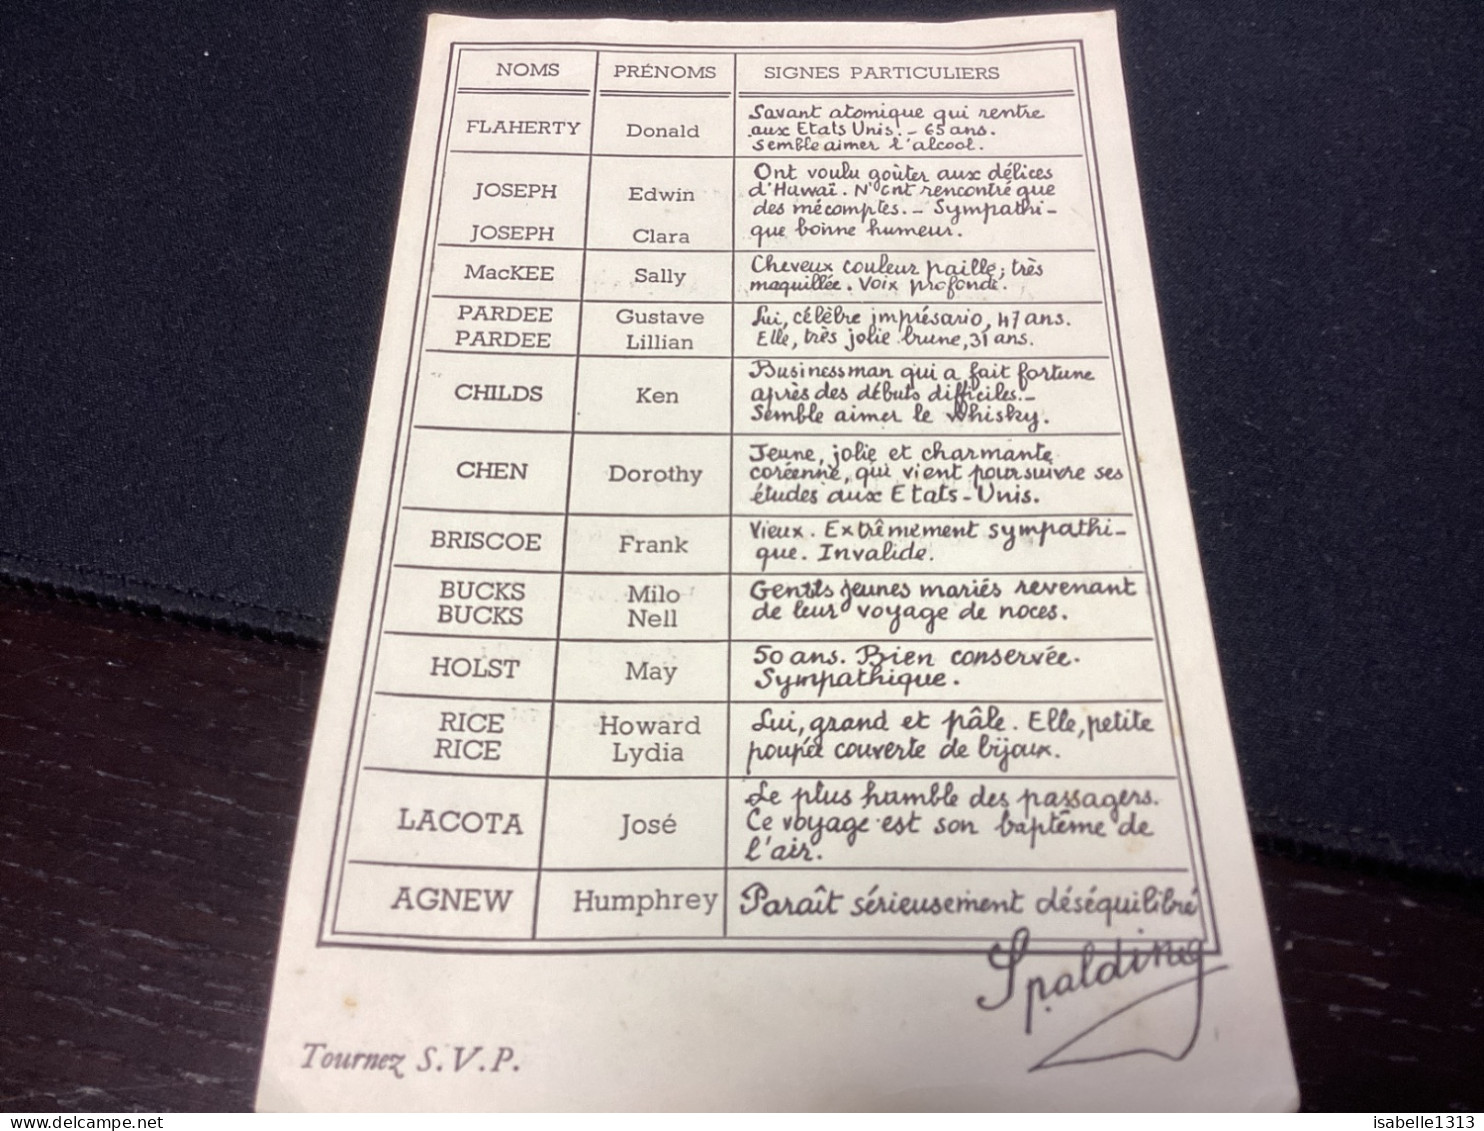 NOMS PRÉNOMS SIGNES PARTICULIERS
FLAHERTY Donald Savant atomique qui rentre
aux Etats Unis. _ 65 ans.
Semble aimer l'alcool.
JOSEPH Edwin Ont voulu goûter aux délices
d'Huwaï. N'ont rencontré que
des mécomptes. _ Sympathi-
JOSEPH Clara que bonne humeur.
MacKEE Sally Cheveux couleur paille; très
maquillée. Voix profonde.
PARDEE Gustave Lui, célèbre imprésario, 47 ans.
PARDEE Lillian Elle, très jolie brune, 31 ans.
CHILDS Ken Businessman qui a fait fortune
après des débuts difficiles._
Semble aimer le Whisky.
CHEN Dorothy Jeune, jolie et charmante
coréenne, qui vient poursuivre ses
études aux Etats-Unis.
BRISCOE Frank Vieux. Extrêmement sympathi-
que. Invalide.
BUCKS Milo Gentils jeunes mariés revenant
BUCKS Nell de leur voyage de noces.
HOLST May 50 ans. Bien conservée.
Sympathique.
RICE Howard Lui, grand et pâle. Elle, petite
RICE Lydia poupée couverte de bijoux.
LACOTA José Le plus humble des passagers.
Ce voyage est son baptême de
l'air.
AGNEW Humphrey Paraît sérieusement déséquilibré
Spalding
Tournez S.V.P.
isabelle1313